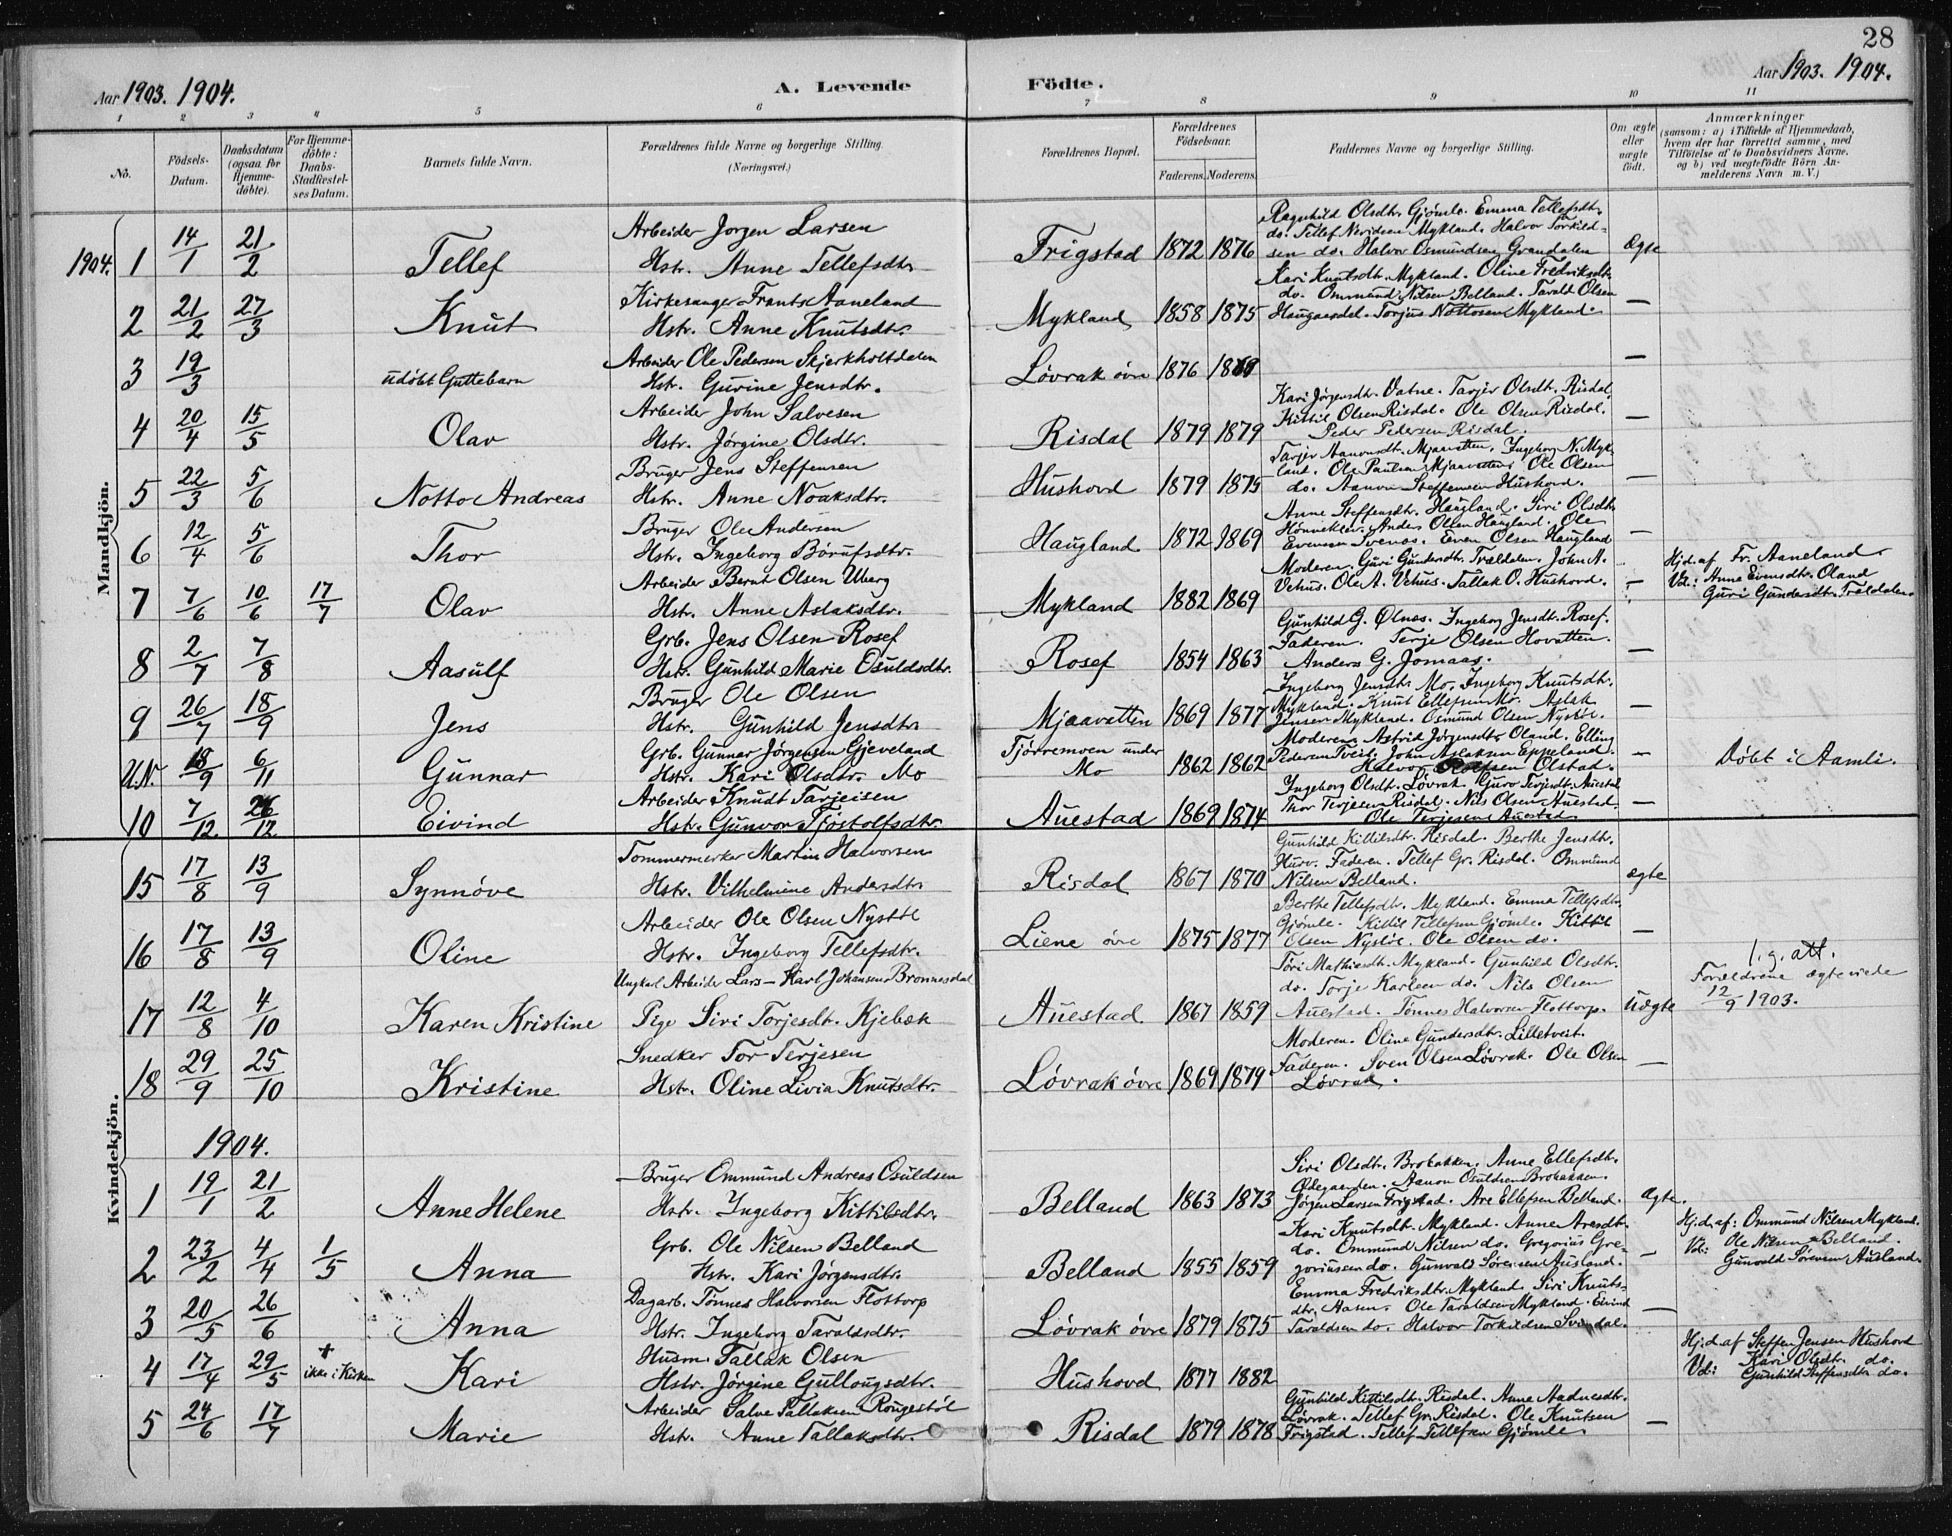 28
Aar 1903. 1904.
A. Levende
Födte.
Aar 1903. 1904.
1 2 3 4 5 6 7 8 9 10 11
No.
Födsels-Datum.
Daabsdatum (ogsaa for Hjemme-döbte).
For Hjemme-döbte: Daabs-Stadfæstel-ses Datum.
Barnets fulde Navn.
Forældrenes fulde Navne og borgerlige Stilling. (Næringsvei.)
Forældrenes Bopæl.
Forældrenes Födselsaar.
Faderens. Moderens.
Faddernes Navne og borgerlige Stilling.
Om ægte eller uægte födt.
Anmærkninger
(saasom: a) i Tilfælde af Hjemmedaab, hvem der har forrettet samme, med Tilföielse af to Daabsvidners Navne. og b) ved uægtefödte Börn An-melderens Navn m. V.)
Mandkjön.
1904. 1 14/1 21/2 Tellef
Arbeider Jørgen Larsen
Hstr. Anne Tellefsdtr.
Frigstad 1872 1876
Ragnhild Olsdtr. Gjømle. Emma Tellefsdtr.
do. Tellef Neridsen Mykland. Halvor Torkild-
sen do. Halvor Osmundsen Grandalen
Ægte
2 21/2 27/3 Knut
Kirkesanger Frants Aaneland
Hstr. Anne Knutsdtr.
Mykland 1858 1875
Kari Knutsdtr. Mykland. Oline Fredriksdtr.
do. Ommund Nilsen Belland. Tarald Olsen
Haugaasdal. Torjus Nottosen Mykland.
—
3 19/3 udöbt Guttebarn
Arbeider Ole Pedersen Skjerkholtdalen
Hstr. Gurine Jensdtr.
Løvrak øvre 1876
—
4 20/4 15/5 Olav
Arbeider John Salvesen
Hstr. Jørgine Olsdtr.
Risdal 1879 1879
Kari Jørgensdtr. Vatne. Tarjer Olsdtr. Risdal.
Kittil Olsen Risdal. Ole Olsen Risdal.
Peder Pedersen Risdal.
—
5 22/3 5/6 Notto Andreas
Bruger Jens Steffensen
Hstr. Anne Noaksdtr.
Hushovd 1879 1875
Tarjer Aanonsdt. Mjaavatten. Ingeborg N. Myk-
land. Ole Paulsen Mjaavatten. Ole Olsen
do. Aanon Steffensen Hushovd.
—
6 12/4 5/6 Thor
Bruger Ole Andersen
Hstr. Ingeborg Børufsdtr.
Haugland 1872 1869
Anne Steffensdtr. Haugland. Siri Olsdtr.
Anders Olsen Haugland. Ole
Evensen Svenøs. Even Olsen Haugland
—
7 7/6 10/6 17/7 Olav
Arbeider Bernt Olsen Uberg
Hstr. Anne Aslaksdtr.
Mykland 1882 1869
Moderen. Guri Gundersdtr. Trældalen. John A.
Vehus. Ole A. Vehus. Tallak O. Hushovd.
—
Hj.d. af Fr. Aaneland
Vd.: Anne Evensdtr. Oland
Guri Gundersdtr. Trældalen.
8 2/7 7/8 Aasulf
Grb. Jens Olsen Rosef
Hstr. Gunhild Marie Osuldsdtr.
Rosef 1854 1863
Gunhild G. Ølnes. Ingeborg Jensdtr. Rosef.
Faderen. Terje Olsen Hovatten.
Anders G. Jomaas.
—
9 26/7 18/9 Jens
Bruger Ole Olsen
Hstr. Gunhild Jensdtr.
Mjaavatten 1869 1877
Ingeborg Jensdtr. Mo. Ingeborg Knutsdtr.
Mykland. Knut Ellefsen Mo. Aslak
Jensen Mykland. Osmund Olsen Nystöl.
—
U.N. 18/9 6/11 Gunnar
Grb. Gunnar Jørgensen Gjeveland
Hstr. Kari Olsdtr. Mo
Tjørremoen under
Mo 1862 1862
Moderen. Astrid Jørgensdtr. Oland. Elling
Pedersen Tveit. John Aslaksen Eppeland.
Halvor Rolfsen Olstad.
—
Döbt i Aamli.
10 7/12 26/12 Eivind
Arbeider Knudt Tarjeisen
Hstr. Gunvor Tjöstolfsdtr.
Auestad 1869 1874
Ingeborg Olsdtr. Løvrak. Guro Terjesdtr. Auestad
Thor Terjesen Risdal. Nils Olsen Auestad.
Ole Terjesen Auestad.
—
Kvindekjön.
15 17/8 13/9 Synnöve
Tommermerker Martin Halvorsen
Hstr. Vilhelmine Andersdtr.
Risdal 1867 1870
Gunhild Kittilsdtr. Risdal. Berthe Jensdtr.
Hurv. Faderen. Tellef Gr. Risdal. Ommund
Nilsen Belland.
ægte
16 17/8 13/9 Oline
Arbeider Ole Olsen Nystöl
Hstr. Ingeborg Tellefsdtr.
Liene øvre 1875 1877
Berthe Tellefsdtr. Mykland. Emma Tellefsdtr.
Gjømle. Kittil Tellefsen Gjømle. Kittil
Olsen Nystöl. Ole Olsen do.
—
17 12/8 4/10 Karen Kristine
Ungkarl Arbeider Lars Karl Johansen Bronnesdal
Pige Siri Torjesdtr. Kjebæk
Auestad 1867 1859
Tori Mathiasdtr. Mykland. Gunhild Olsdtr.
do. Torje Karlsen do. Nils Olsen
Auestad. Tønnes Halvorsen Flottorp.
Uægte
1. g. att.
Forældrene ægteviede
12/9 1903.
18 29/9 25/10 Kristine
Snedker Tor Terjesen
Hstr. Oline Livia Knutsdtr.
Løvrak øvre 1869 1879
Moderen. Oline Gundersdtr. Lilletveit.
Faderen. Sven Olsen Løvrak. Ole Olsen
Løvrak.
—
1904.
1 19/1 21/2 Anne Helene
Bruger Ommund Andreas Osuldsen
Hstr. Ingeborg Kittilsdtr.
Belland 1863 1873
Siri Olsdtr. Brobakken. Anne Ellefsdtr.
Ødegaarden. Aanon Osuldsen Brobakken.
Jørgen Larsen Frigstad. Are Ellefsen Belland.
Ægte.
2 23/2 4/4 1/5 Anna
Grb. Ole Nilsen Belland
Hstr. Kari Jørgensdtr.
Belland 1855 1859
Kari Knutsdtr. Mykland. Anne Aresdtr.
do. Ommund Nilsen do. Gregorius Gre-
goriussen do. Gunvald Sørensen Ausland.
—
Hj.d. af: Ommund Nilsen Mykland.
Vd: Ole Nilsen Belland.
Gunvald Sørensen Ausland.
3 20/5 26/6 Anna
Dagarb. Tønnes Halvorsen Flottorp
Hstr. Ingeborg Taraldsdtr.
Løvrak øvre 1879 1875
Emma Fredriksdtr. Mykland. Siri Knuts-
dtr. Aasen. Ole Taraldsen Mykland. Eivind
Taraldsen do. Halvor Torkildsen Svindal.
—
4 17/4 29/5 + ikke i Kirken Kari
Husm. Tallak Olsen
Hstr. Jørgine Gullougsdtr.
Hushovd 1877 1882
Hj.d. af Steffen Jensen Hushovd
Vd: Kari Olsdtr. do.
Gunhild Steffensdtr. do.
5 24/6 17/7 Marie
Arbeider Salve Tallaksen Rougestöl
Hstr. Anne Tallaksdtr.
Risdal 1879 1878
Gunhild Kittilsdtr. Risdal. Anne Aadnesdtr.
Løvrak. Tellef Gr. Risdal. Ole Knutsen
Frigstad. Tellef Tellefsen Gjømle.
—